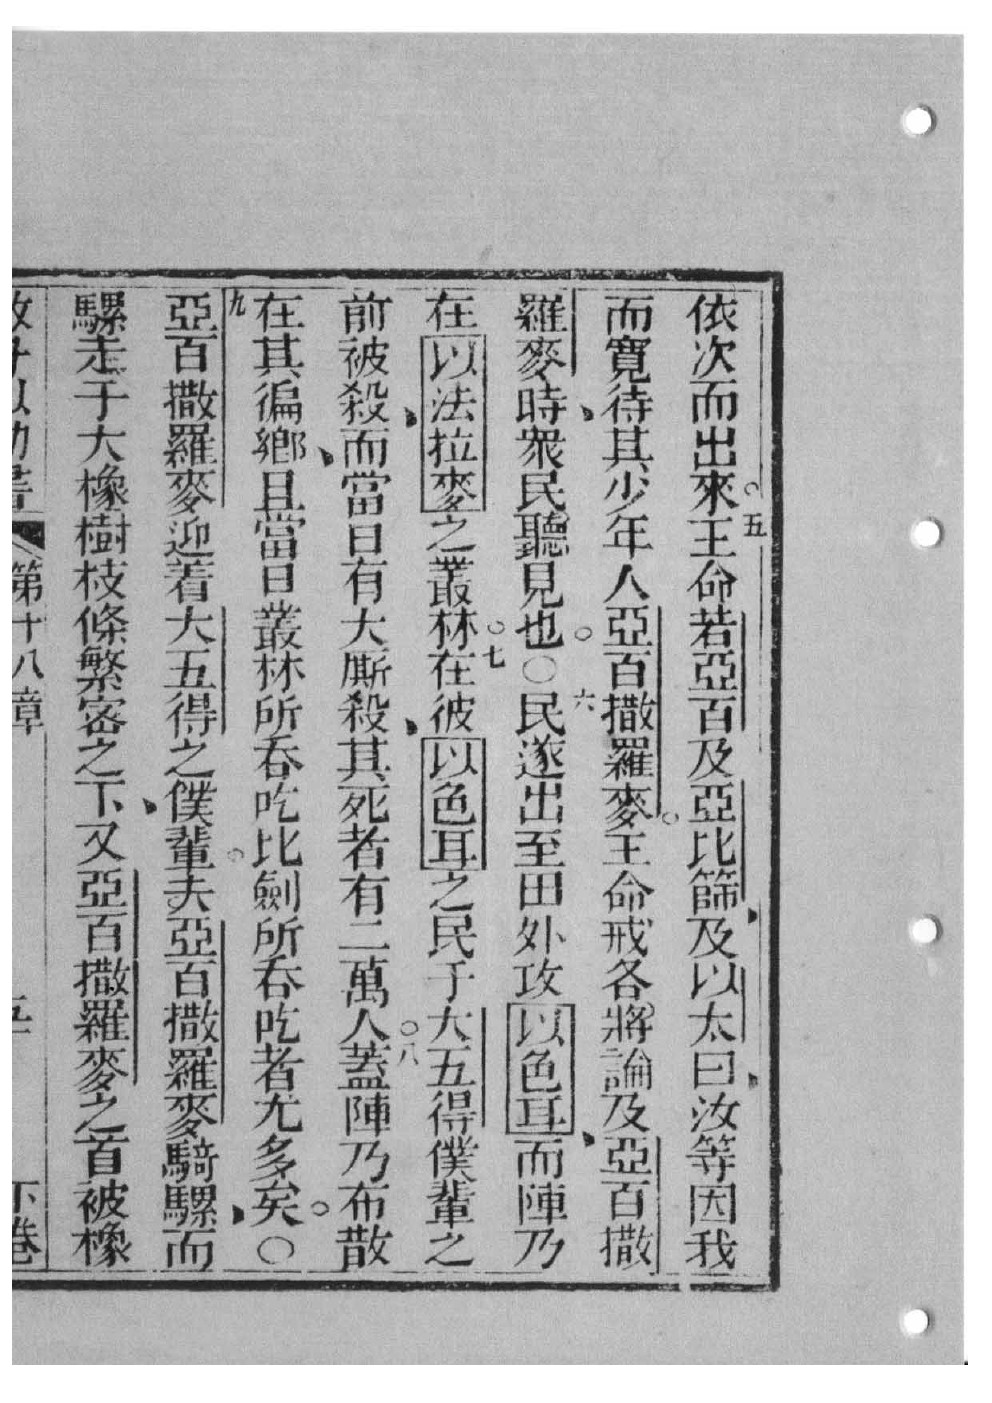 依次而出來。五王命若亞百及亞比篩及以太曰汝等因我
而寬待其少年人亞百撒羅麥。王命戒各將論及亞百撒
羅麥時衆民聽見也。〇六民遂出至田外攻以色耳而陣乃
在以法拉麥之叢林。七在彼以色耳之民于大五得僕輩之
前被殺而當日有大厮殺其死者有二萬人。八蓋陣乃布散
在其徧鄉且當日叢林所吞吃比劍所吞吃者尤多矣。〇
九亞百撒羅麥迎着大五得之僕輩。夫亞百撒羅麥騎騾而
騾走于大橡樹枝條繁密之下又亞百撒羅麥之首被橡
第十八章
下卷